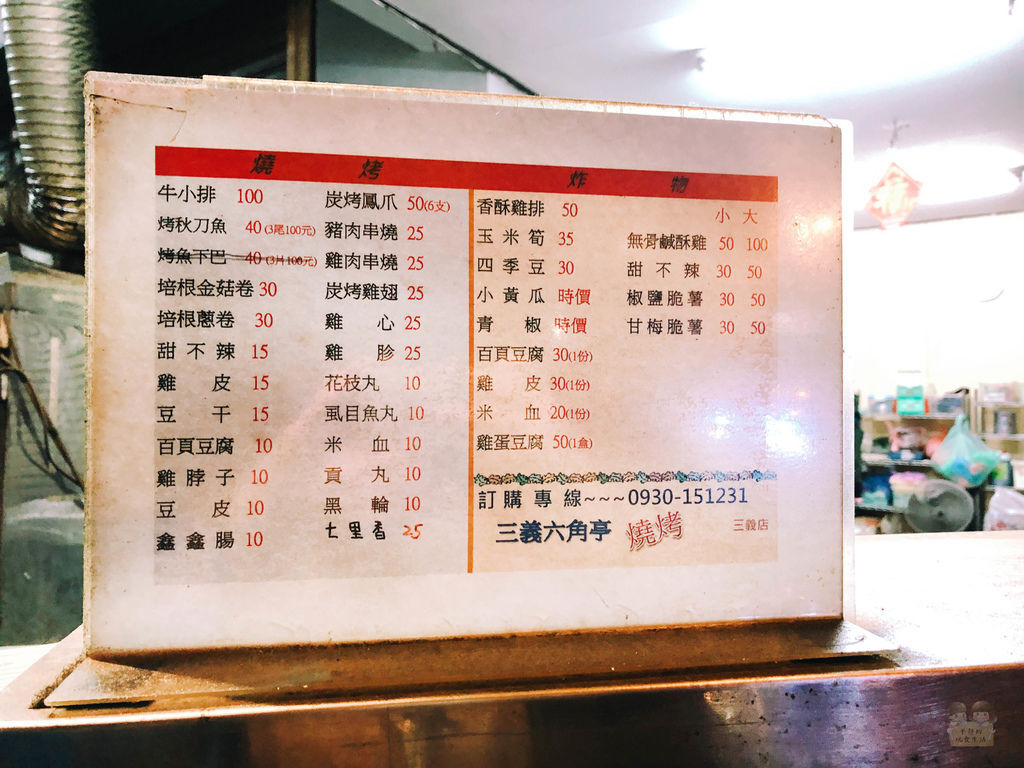 燒烤
牛小排 100
烤秋刀魚 40(3尾100元)
烤魚下巴 40(3片100元)
培根金菇卷 30
培根蔥卷 30
甜不辣 15
雞皮 15
豆干 15
百頁豆腐 10
雞脖子 10
豆皮 10
鑫鑫腸 10
炭烤鳳爪 50(6支)
豬肉串燒 25
雞肉串燒 25
炭烤雞翅 25
雞心 25
雞胗 25
花枝丸 10
虱目魚丸 10
米血 10
貢丸 10
黑輪 10
七里香 25
炸物
香酥雞排 50
玉米筍 35
四季豆 30
小黃瓜 時價
青椒 時價
百頁豆腐 30(1份)
雞皮 30(1份)
米血 20(1份)
雞蛋豆腐 50(1盒)
小 大
無骨鹹酥雞 50 100
甜不辣 30 50
椒鹽脆薯 30 50
甘梅脆薯 30 50
訂購專線~~~0930-151231
三義六角亭 燒烤 三義店